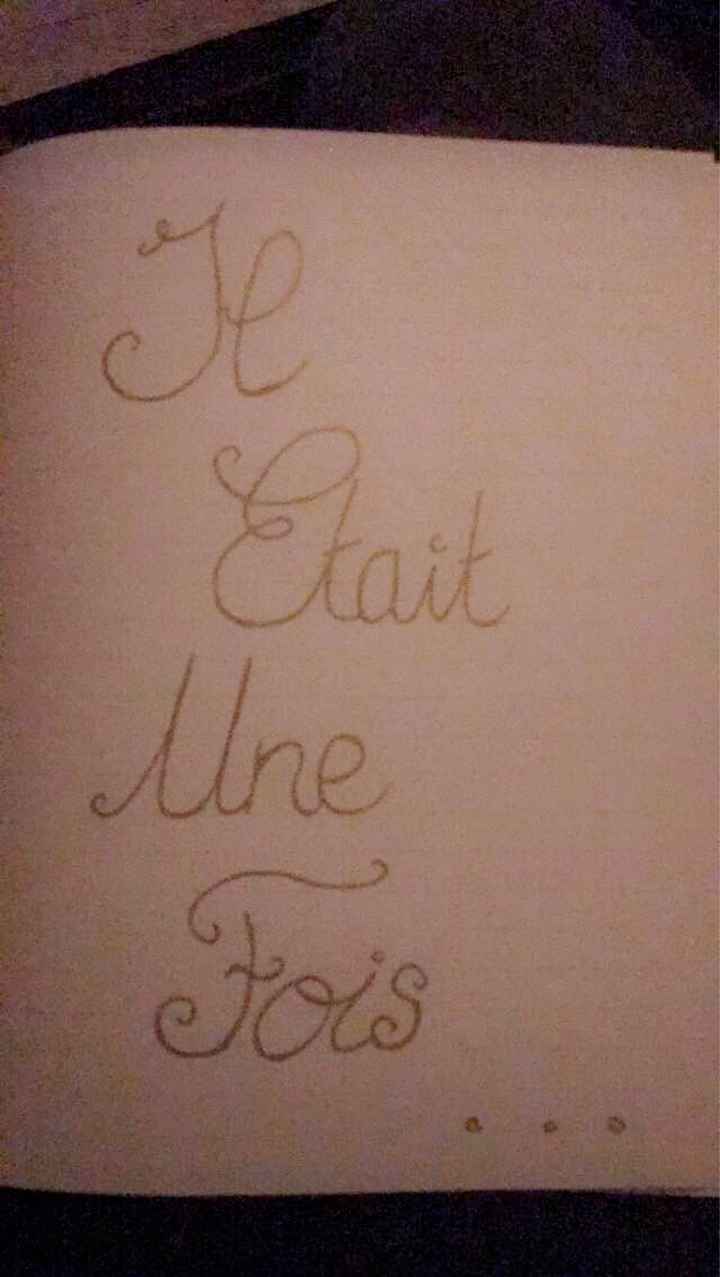 Il
Etait
Une
Fois
...